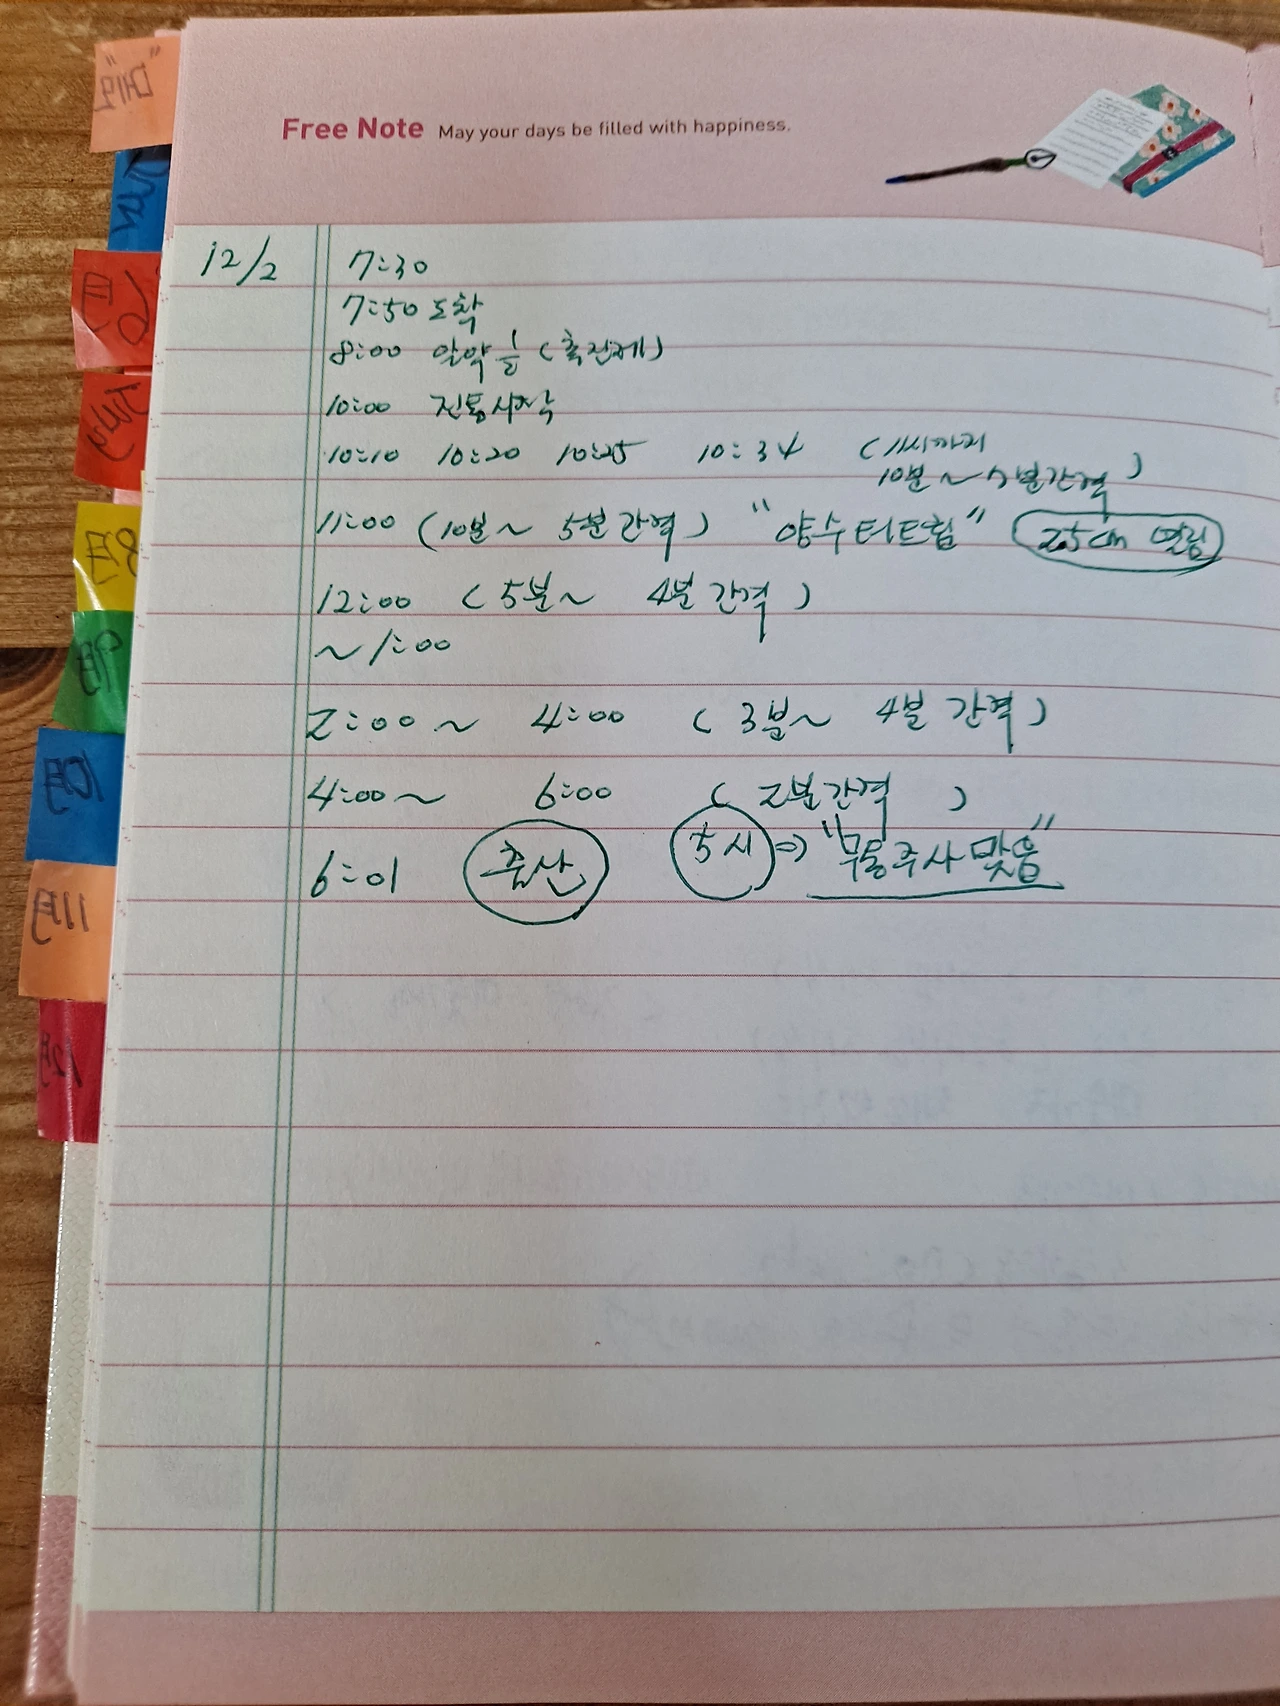 Free Note May your days be filled with happiness.
12/2 7:30
7:50 도착
8:00 알약 ½ (촉진제)
10:00 진통시작
10:10 10:20 10:25 10:34 (11시까지
10분~7분간격)
11:00 (10분~ 5분간격) "양수터트림" 2.5cm 열림
12:00 (5분~ 4분간격)
~1:00
2:00~ 4:00 (3분~ 4분간격)
4:00~ 6:00 (2분간격)
6:01 출산 5시 => "무통주사 맞음"
8월
9월
10월
11월
12월